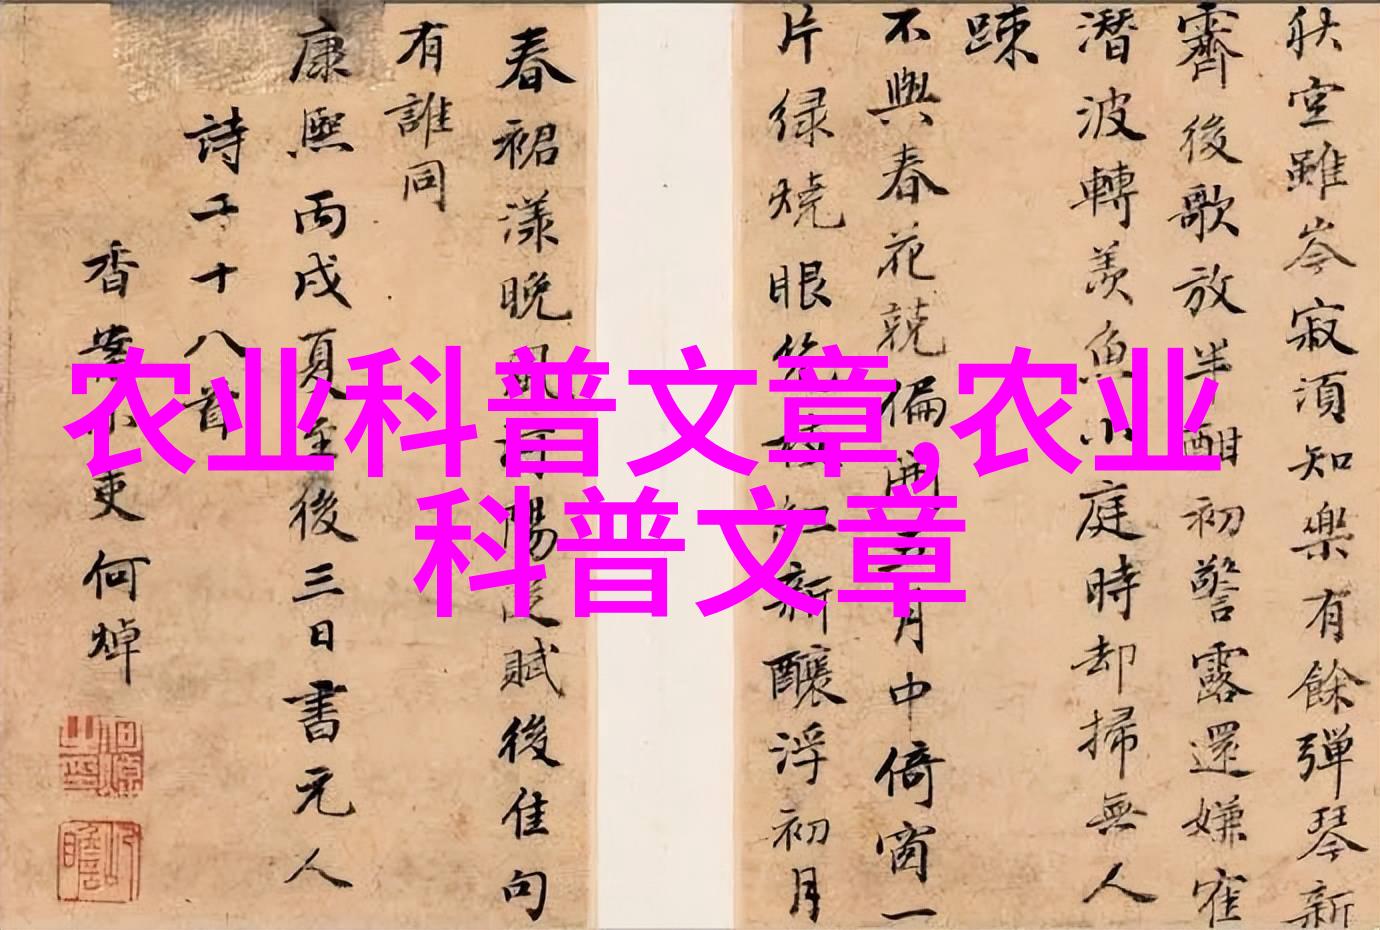 秋空雖岑寂須知樂有餘彈琴新
霽後歌放半酣初警露還嫌雀
潛波轉羨魚小庭時却掃無人
踈
不與春花競偏開五月中倚窗一
片绿燒眼新釀浮初月
春裙漾晚賦後佳句
有誰同
康熙丙戌夏至後三日書元人
詩二十八首
香案小吏何焯
农业科普文章,农业
科普文章